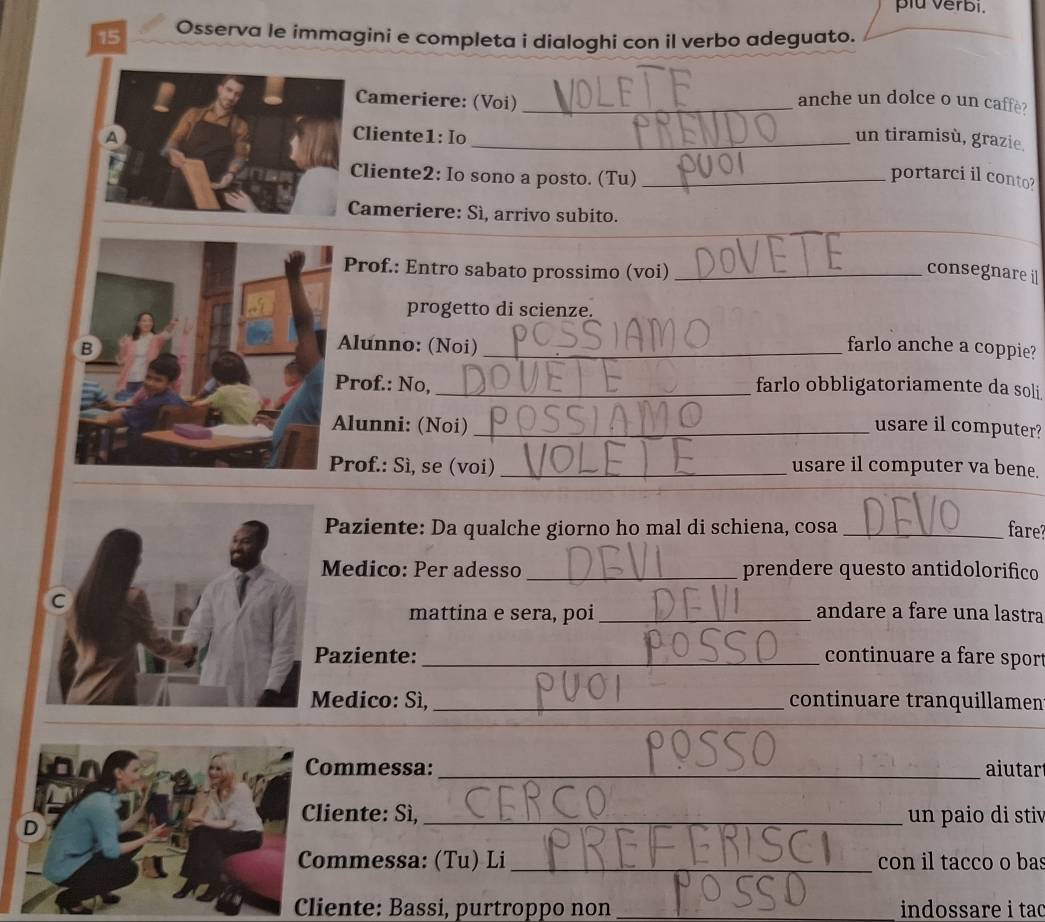 più verbi.
15 Osserva le immagini e completa i dialoghi con il verbo adeguato.
A
Cameriere: (Voi) VOLETE anche un dolce o un caffè?
Cliente1: Io PRENDO un tiramisù, grazie.
Cliente2: Io sono a posto. (Tu) PUOI portarci il conto?
Cameriere: Sì, arrivo subito.
B
Prof.: Entro sabato prossimo (voi) DOVETE consegnare il
progetto di scienze.
Alunno: (Noi) POSSIAMO farlo anche a coppie?
Prof.: No, DOVETE farlo obbligatoriamente da soli.
Alunni: (Noi) POSSIAMO usare il computer?
Prof.: Sì, se (voi) VOLETE usare il computer va bene.
C
Paziente: Da qualche giorno ho mal di schiena, cosa DEVO fare?
Medico: Per adesso DEVI prendere questo antidolorifico
mattina e sera, poi DEVI andare a fare una lastra
Paziente: POSSO continuare a fare sport
Medico: Sì, PUOI continuare tranquillamen
D
Commessa: POSSO aiutar
Cliente: Sì, CERCO un paio di stiv
Commessa: (Tu) Li PREFERISCI con il tacco o bas
Cliente: Bassi, purtroppo non POSSO indossare i tac